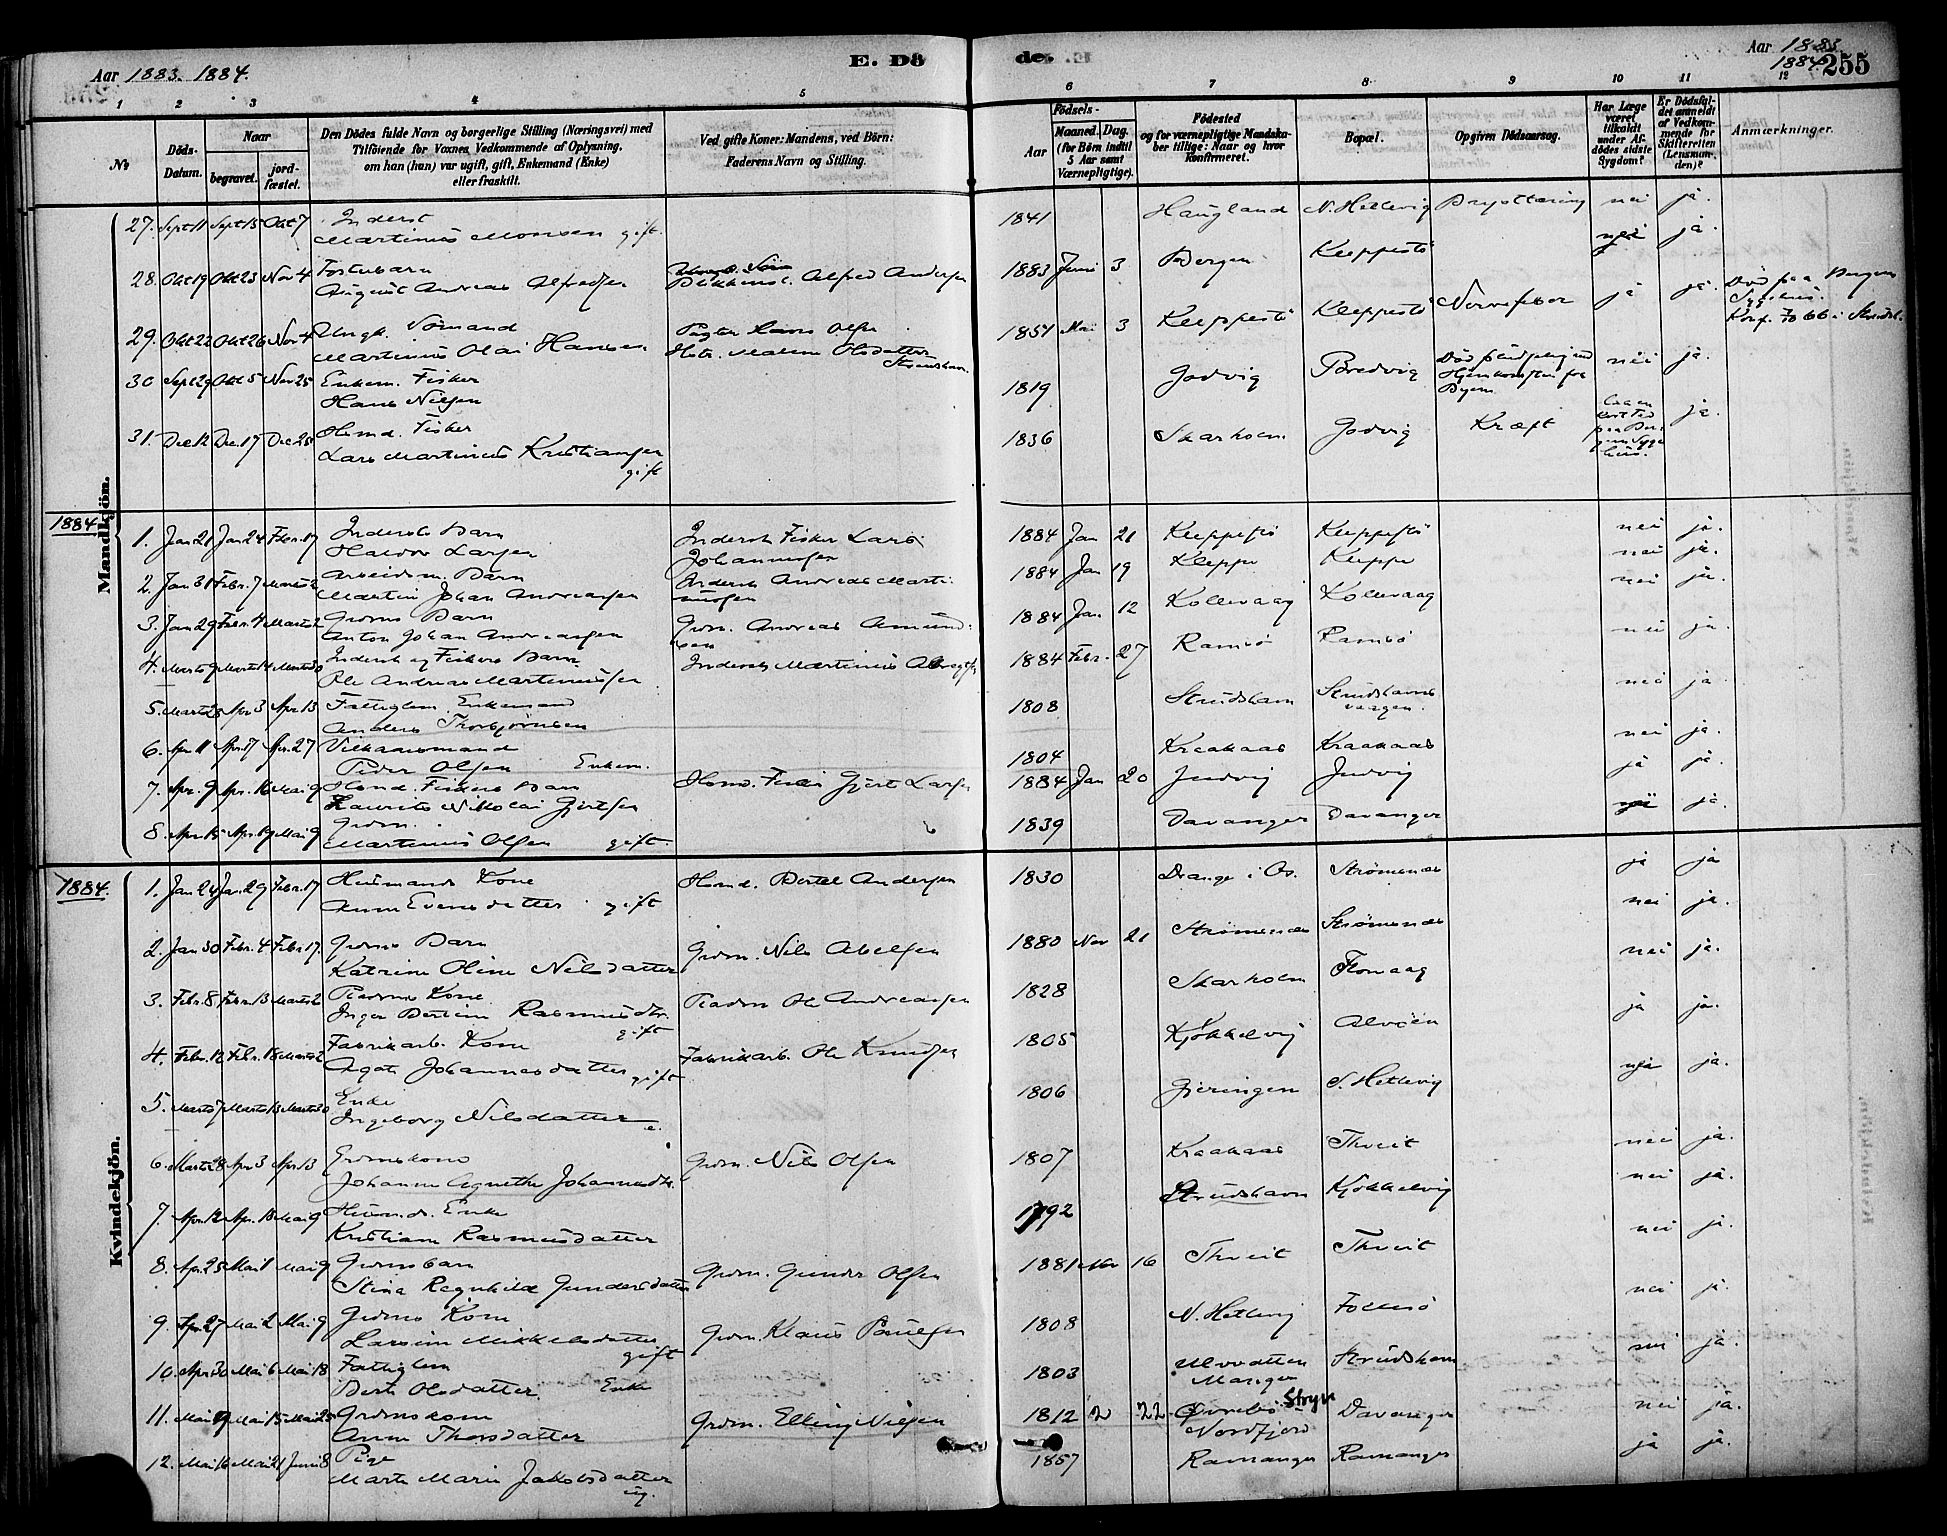 Aar 1883. 1884.
E. Dö
de. E
Aar 1883
1884. 255
1 2 3 4 5 6 7 8 9 10 11 12
№
Döds-Datum.
Naar
begravet. jord-fæstet.
Den Dödes fulde Navn og borgerlige Stilling (Næringsvei) med
Tilföiende for Voxnes Vedkommende af Oplysning,
om han (hun) var ugift, gift, Enkemand (Enke)
eller fraskilt.
Ved gifte Koner: Mandens, ved Börn:
Faderens Navn og Stilling.
Födsels-
Aar Maaned. Dag.
(for Börn indtil
5 Aar samt
Værnepligtige).
Födested
og for værnepligtige Mandska-
ber tillige: Naar og hvor
konfirmeret.
Bopæl.
Opgiven Dödsaarsag.
Har Læge
været
tilkaldt
under Af-
dödes sidste
Sygdom?
Er Dödsfal-
det anmeldt
af Vedkom-
mende for
Skifteretten
(Lensman-
den)?
Anmærkninger.
Mandkjön.
27. Sept 11 Sept 15 Okt 7 Inderst
Martinus Monsen gift. 1841 Haugland N. Hetlevig Brystbetændelse nei ja.
28. Okt 19 Okt 23 Nov 4 Fosterbarn
August Andreas Alfredsen Alfred Andersen 1883 Juni 3 Bergen Kleppestö nei ja.
29. Okt 22 Okt 26 Nov 4 Ungk. Sömand
Martinus Olai Hansen Olsen
Olsdatter
Strudshavn 1857 Mai 3 Kleppestö Kleppestö Nervefeber ja ja. Död paa Bergens
Sygehus.
Konf.
30 Sept 29 Okt 5 Nov 25 Enkem. Fisker
Hans Nilsen 1819 Godvig Bredvig Död
Hjemkomsten fra
Byen nei ja.
31. Dec 12 Dec. 17 Dec 25 Husmd. Fisker
Lars Martinus Kristiansen
gift 1836 Skarholm. Godvig Kræft ja.
1884
1. Jan 21 Jan 24 Febr. 17 Inderst Barn
Haldor Larsen Inderst Fisker Lars
Johannesen 1884 Jan 21 Kleppestö Kleppestö nei ja.
2. Jan 31 Febr. 7 Marts 2 Arbeidsm. Barn
Martin Johan Andreassen Inderst Andreas Marti-
nusen 1884 Jan 19 Kleppe Kleppe nei ja.
3. Jan 29 Febr. 4 Marts 2 Grdms Barn
Anton Johan Andreassen Grdm. Andreas Amund-
sen 1884 Jan. 12 Kollevaag Kollevaag nei ja.
4. Marts 9 Marts 14 Marts 30 Inderst og Fiskers Barn
Ole Andreas Martinussen Inderst Martinus 1884 Febr. 27 Ramsö Ramsö nei ja.
5. Marts 28 Apr 3 Apr. 13 Fattiglem Enkemand
Anders Thorbjörnsen 1808 Strudshavn Strudshavns
vaagen. nei ja
6. Apr. 11 Apr. 17 Apr. 27 Vilkaarsmand
Peder Olsen Enkem. 1804 Kraakaas Kraakaas nei ja.
7. Apr. 9 Apr. 16 Mai 9 Husmd. Fiskers Barn
Laurits Nikolai Gjertsen Husmd. Fisker Gjert Larsen 1884 Jan 20 Juvvig Juvvig ja ja.
8. Apr. 15 Apr. 19 Mai 9 Grdm.
Martinus Olsen gift 1839 Davanger Davanger nei ja.
1884.
Kvindekjön.
1. Jan 24 Jan. 29 Febr. 17 Husmands Kone
Anna Evensdatter gift Husmd. Bertel Andersen 1830 Drange i Os. Strömsnæs ja ja
2. Jan 30 Febr. 4 Febr. 17. Grdms Barn
Katrine Oline Nilsdatter Grdm. Nils Abelsen 1880 Nov 21 Strömsnæs Strömsnæs nei ja.
3. Febr. 8 Febr. 13 Marts 2 Pladsm Kone
Inger Bertine Rasmusdtr.
gift Pladsm Ole Andreassen 1828 Skarholm nei ja.
4. Febr. 12 Febr. 18 Marts 2 Fabrikarb. Kone
Agate Johannesdatter gift Fabrikarb. Ole Knudsen 1805 Kjökkelvig Alvöen ja ja.
5. Marts 7 Marts 13 Marts 30 Enke
Ingeborg Nilsdatter e. 1806 Gjeringen S. Hetlevig ja.
6. Marts 28 Apr 3 Apr 13 Grdmskone
Johanne Agnethe Johannesdtr. Grdm. Nils Olsen 1807 Kraakaas Thveit nei ja.
7. Apr. 12 Apr. 18 Mai 9 Husmds. Enke
Kristiane Rasmusdatter 1792 Strudshavn Kjökkelvig nei ja.
8. Apr. 25 Mai 1 Mai 9 Grdmsbarn
Stina Regnhilde Gundersdatter Grdm. Gunder Olsen 1881 Nov 16 Thveit Thveit nei ja.
9. Apr. 27 Mai 2 Mai 9 Grdms Kone
Larsine Mikkelsdatter
gift Grdm. Klaus Paulsen 1808 N. Hetlevig Follesö nei ja.
10. Apr. 30 Mai 6 Mai 18 Fattiglem
Berte Olsdatter Enke 1803 Ulvvatten
Manger Strudshavn nei ja.
11. Mai 9 Mai 15 Mai 25 Grdmskone
Anne Thorsdatter Grdm. Elling Nilsen 1812 2 22 Övrebö Stryn
Nordfjord Davanger nei ja.
12. Mai 16 Mai 21 Juni 8 Pige
Marte Marie Jakobsdatter
ug. 1857 Ramanger Ramanger ja ja.